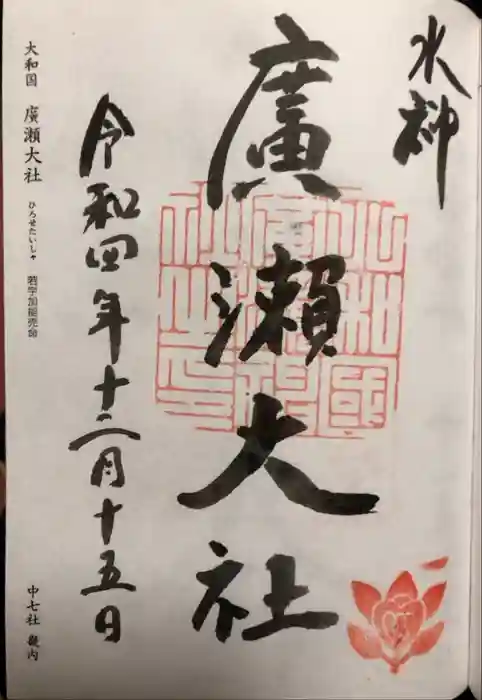 水神
廣瀬大社
令和四年十二月十五日
大和国 廣瀬大社 ひろせたいしゃ 若宇加能売命
中七社 畿内